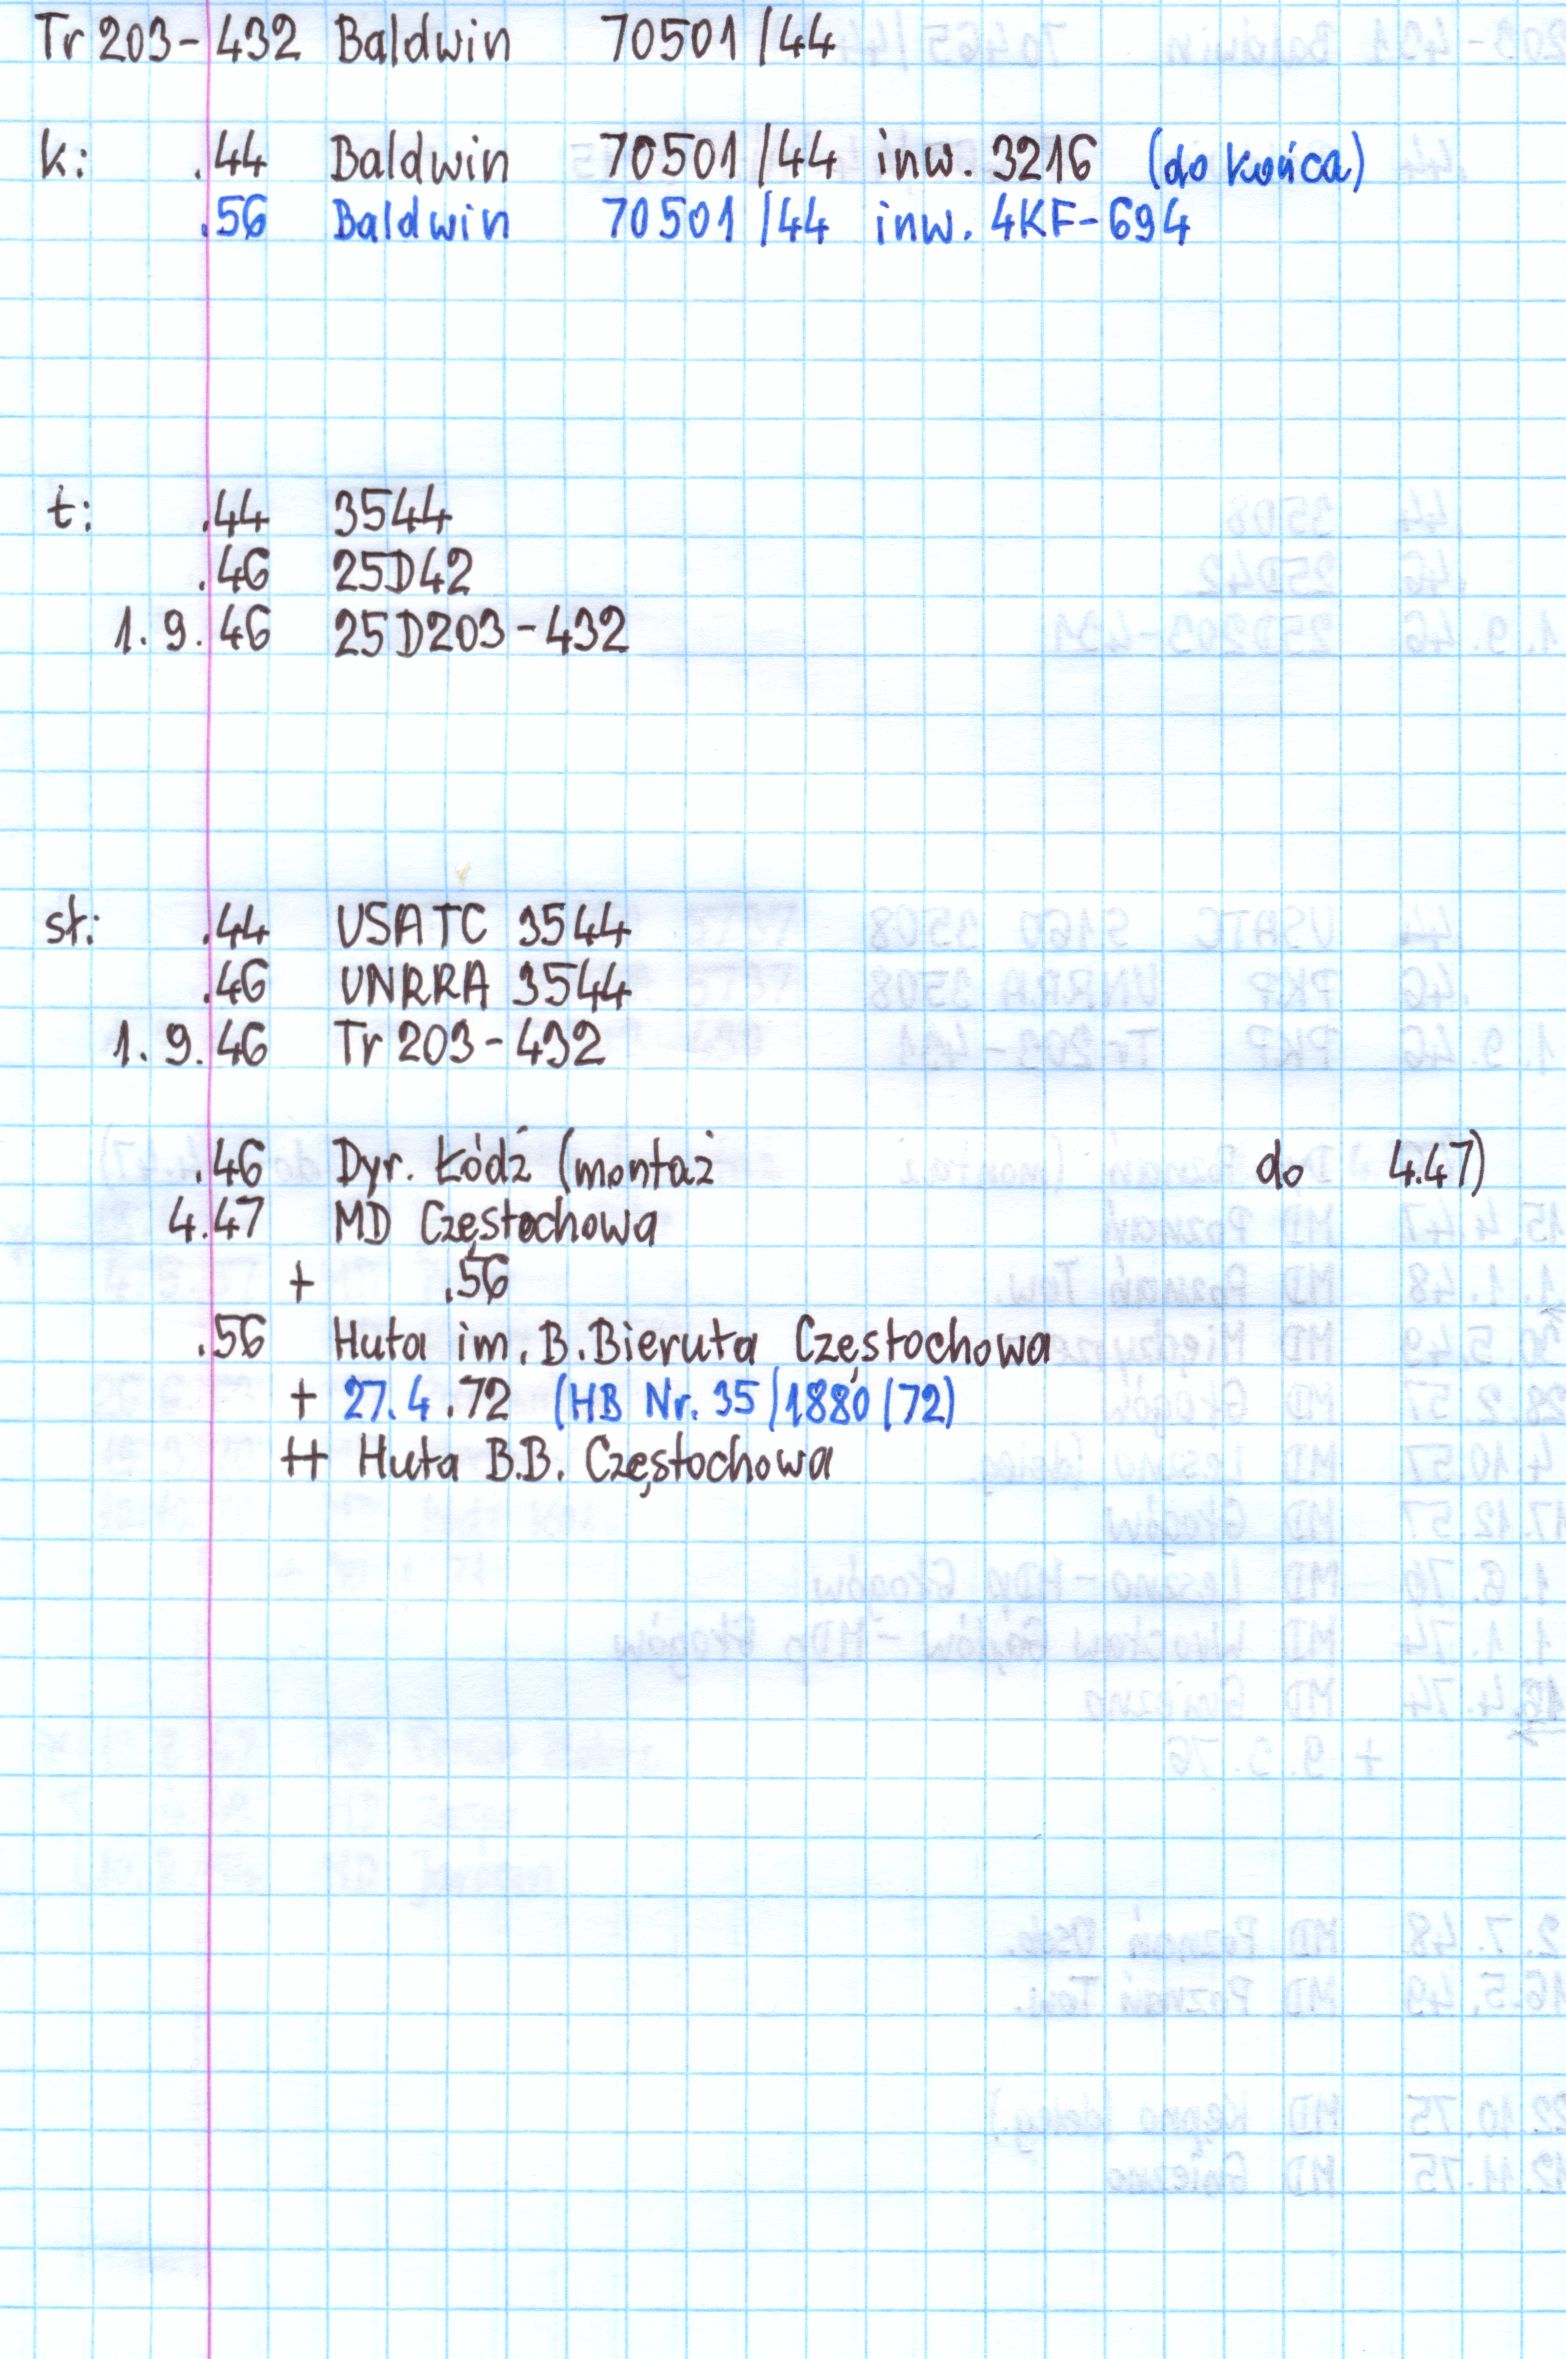 Tr 203-432 Baldwin 70501/44
k: .44 Baldwin 70501/44 inw. 3216 (do końca)
.56 Baldwin 70501/44 inw. 4KF-694
t: .44 3544
.46 25D42
1.9.46 25D203-432
st: .44 USATC 3544
.46 UNRRA 3544
1.9.46 Tr 203-432
.46 Dyr. Łódź (montaż do 4.47)
4.47 MD Częstochowa
+ .56
.56 Huta im. B.Bieruta Częstochowa
+ 27.4.72 (HB Nr. 35/1880/72)
++ Huta B.B. Częstochowa